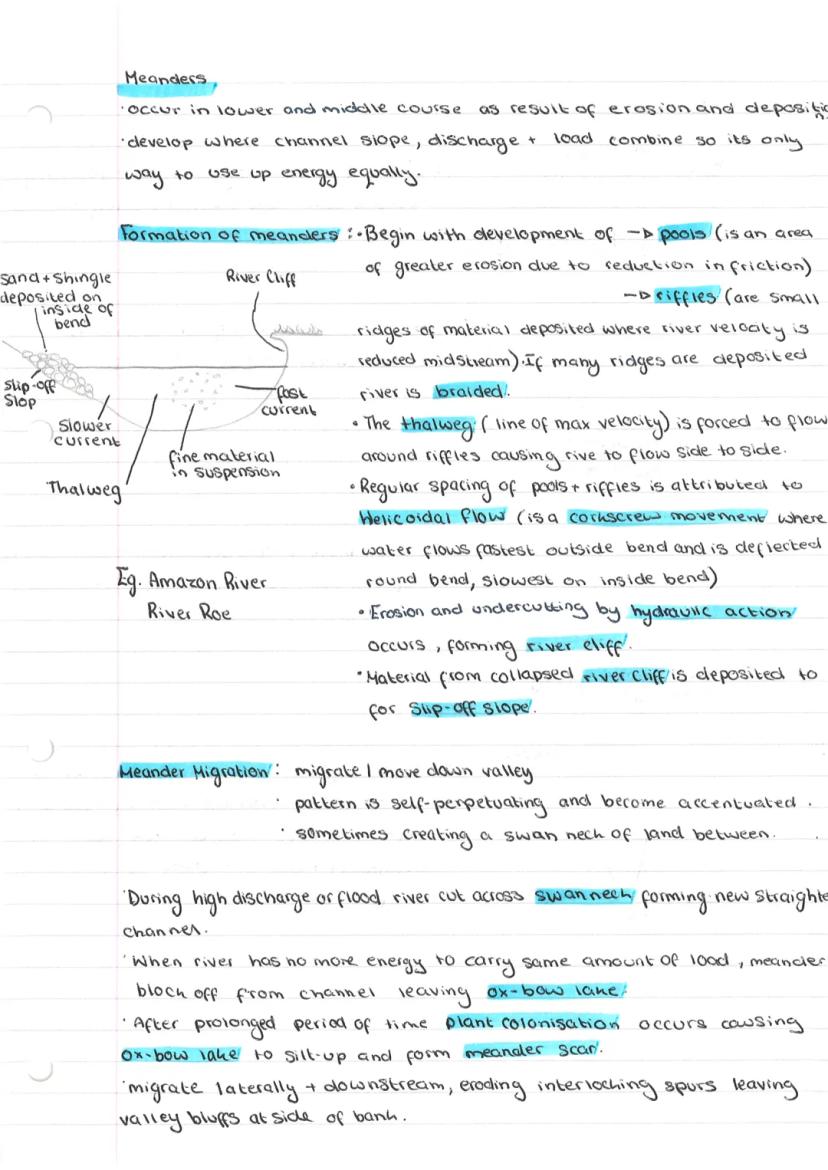 Meanders
·occur in lower and middle course as result of erosion and depositio
n.
·develop where channel slope, discharge + load combine so its only
way to use up energy equally.
Formation of meanders :·Begin with development of → pools (is an area
of greater erosion due to reduction in friction)
→ riffles (are small
ridges of material deposited where river velocity is
reduced midstream).If many ridges are deposited
river is braided.
· The thalweg ( line of max velocity) is forced to flow
around riffles causing rive to flow side to side.
· Regular spacing of pools + riffles is attributed to
Helicoidal flow (is a corkscrew movement where
water flows fastest outside bend and is deflected
round bend, slowest on inside bend)
· Erosion and undercutting by hydraulic action
occurs , forming river cliff.
·Material from collapsed river cliff is deposited to
for slip-off slope.
sand + shingle
deposited on
inside of
bend
River Cliff
slip-off
slop
slower
current
fast
current
fine material
in suspension
Thalweg
Eg. Amazon River
River Roe
Meander Migration : migrate / move down valley
· pattern is self-perpetuating and become accentuated .
· sometimes creating a swan neck of land between.
·During high discharge or flood river cut across swan neck forming new straighte
channel.
·When river has no more energy to carry same amount of load , meander
block off from channel leaving ox-bow lake.
· After prolonged period of time plant colonisation occurs causing
ox-bow lake to silt-up and form meander scar.
·migrate laterally + downstream, eroding interlocking spurs leaving
valley bluffs at side of bank.